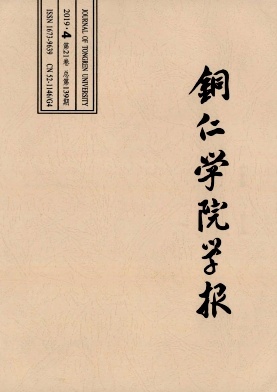 JOURNAL OF TONGREN UNIVERSITY
2019·4 第21卷 总第139期
ISSN 1673-9639 CN 52-1146/G4
銅仁学院学报